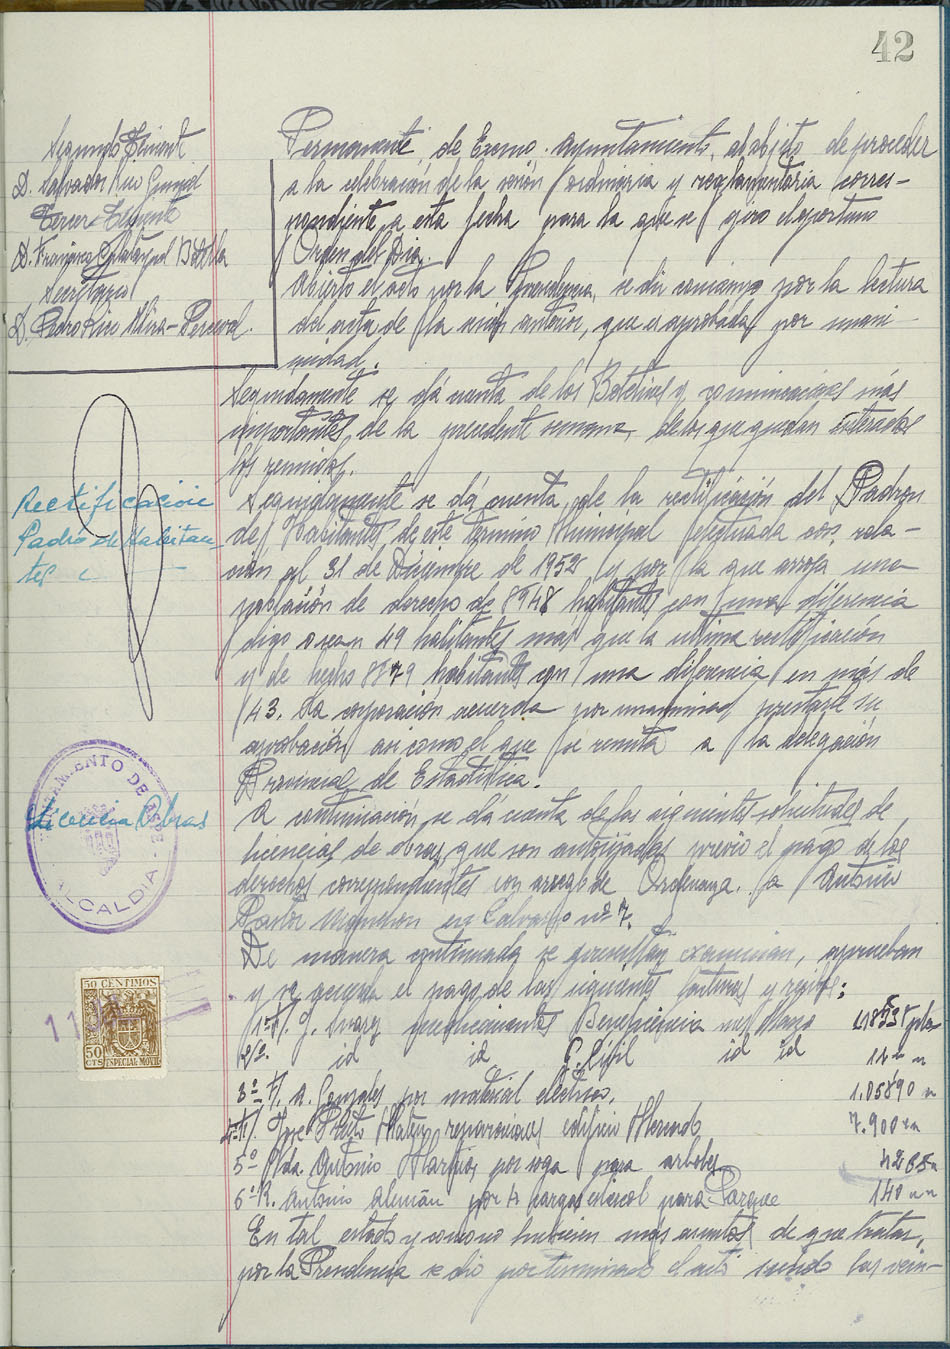 42
Segundo Teniente
D. Salvador Rico
Tercer Teniente
D. Francisco Calatayud Botella
Secretario
D. Pedro Rico Mira-Perceval.
Permanente, de Excmo. Ayuntamiento, al objeto de proceder
a la celebración de la sesión ordinaria y reglamentaria corres-
pondiente a esta fecha para la que se giró el oportuno
Orden del Dia.
Abierto el acto por la Presidencia, se dio comienzo por la lectura
del acta de la sesión anterior, que es aprobada por unani
midad.
Seguidamente se dá cuenta de los Boletines y comunicaciones más
importantes, de la precedente semana, de los que quedan enterados
los reunidos.
Rectificación
Padrón de Habitan
tes
Seguidamente se dá cuenta, de la rectificación del Padron
de Habitantes de este Termino Municipal efectuada con rela-
ción al 31 de Diciembre de 1952 y por la que arroja una
población de derecho de 8948 habitantes con una diferencia
digo o sean 49 habitantes más que la ultima rectificación
y de hecho 8879 habitantes con una diferencia en más de
43. La corporación acuerda por unanimidad prestarle su
aprobación asi como el que se remita a la delegación
Provincial de Estadística.
AYUNTAMIENTO DE ASPE
ALCALDIA
Licencia Obras
A continuación, se dá cuenta de las siguientes solicitudes de
licencias de obras, que son autorizadas previo el pago de los
derechos correspondientes con arreglo de Ordenanza. a Antonio
Pastor en Calvario nº 7.
De manera continuada se presentan examinan, aprueban
y se acuerda el pago de las siguientes facturas y recibos:
50 CENTIMOS
50 CTS
ESPECIAL MOVIL
1ª F. J. Alvarez medicamentos Beneficencia mes Marzo
2ª id id G. Civil id id
3ª F. A. Gonzales por material electrico, 1.058'90 "
4ª F. Jose Prieto Mateu reparaciones edificio Mercado 7.900 "
5º Vda. Antonio Martinez por soga para arboles
6º R. Antonio Alemán por 4 cargas para Parque 140 " "
En tal estado y como no hubiesen mas asuntos de que tratar,
por la Presidencia se dio por terminado el acto siendo las vein-